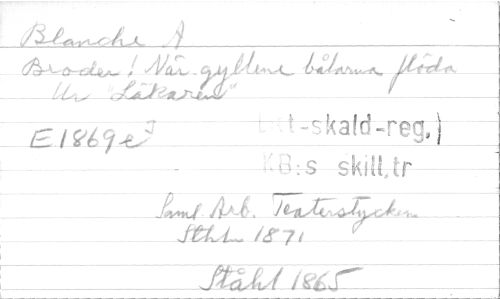 Blanche A
Broder! När gyllene bålarna flöda
Ur "Läkaren"
E1869e
-skald-reg,)
KB:s skill,tr
Saml. Arb. Teaterstycken
Sthlm 1871
Ståhl 1865